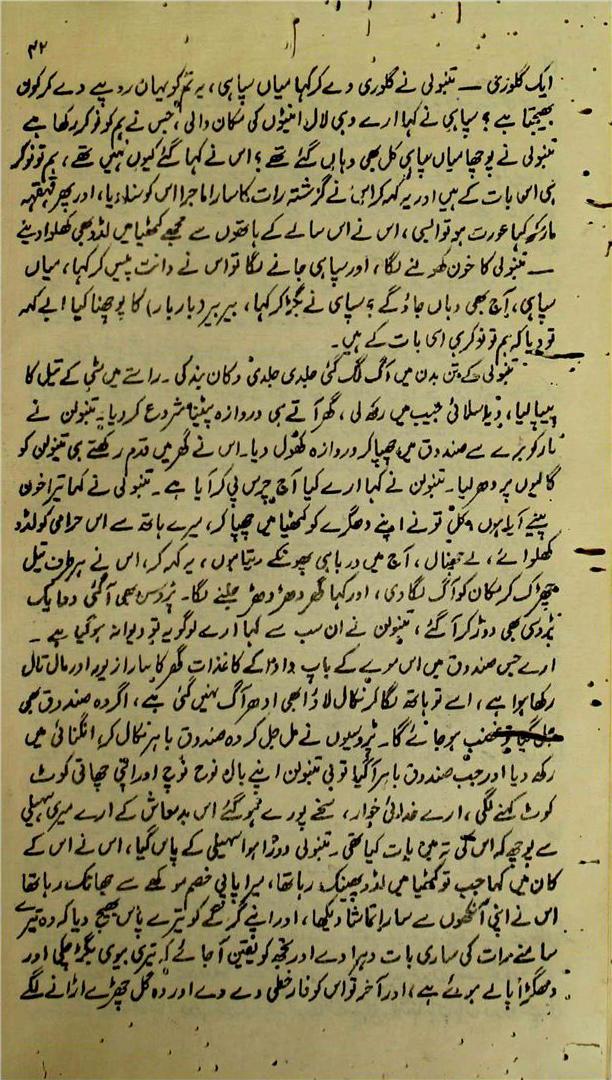 ۴۲
ایک گلوری — تنبولی نے گلوری دے کر کہا میاں سپاہی، یہ تم کو یہاں روپیے دے کر کون
بھیجتا ہے؟ سپاہی نے کہا ارے وہی لال اینٹوں کی مکان والی، جس نے ہم کو نوکر رکھا ہے
تنبولی نے پوچھا میاں سپاہی کل بھی وہاں گئے تھے؟ اس نے کہا گئے کیوں نہیں تھے، ہم تو نوکر
ہی اس بات کے ہیں اور یہ کہہ کر اس نے گزشتہ رات کا سارا ماجرا اس کو سنا دیا، اور پھر قہقہہ
مار کر کہا عورت ہو تو ایسی، اس نے اس سالے کے ہاتھوں سے مجھے کٹھیا میں لڈو بھی کھلوا دیئے
— تنبولی کا خون کھولنے لگا، اور سپاہی جانے لگا تو اس نے دانت پیس کر کہا، میاں
سپاہی، آج بھی وہاں جاؤ گے؟ سپاہی نے بگڑ کر کہا، بیر بیر (بار بار) کا پوچھنا کیا ابے کہہ
تو دیا کہ ہم تو نوکر ہی اسی بات کے ہیں۔
تنبولی کے تن بدن میں آگ لگ گئی جلدی جلدی دکان بند کی۔ راستے میں مٹی کے تیل کا
پیپا لیا، دیا سلائی جیب میں رکھ لی، گھر آتے ہی دروازہ پیٹنا شروع کر دیا۔ تنبولن نے
یار کو بڑے سے صندوق میں چھپا کر دروازہ کھول دیا۔ اس نے گھر میں قدم رکھتے ہی تنبولن کو
گالیوں پر دھر لیا۔ تنبولن نے کہا ارے کیا آج چرس پی کر آیا ہے۔ تنبولی نے کہا تیرا خون
پینے آیا ہوں، کل تو نے اپنے دھگڑے کو کٹھیا میں چھپا کر، میرے ہاتھ سے اس حرامی کو لڈو
کھلوائے، لے چھنال، آج میں دربا ہی پھونکے دیتا ہوں، یہ کہہ کر، اس نے ہر طرف تیل
چھڑک کر مکان کو آگ لگا دی، اور کہا گھر دھڑ دھڑ جلنے لگا۔ پڑوسن بھی آ گئی دھا یک
پڑوسی بھی دوڑ کر آ گئے، تنبولن نے ان سب سے کہا ارے لوگو یہ تو دیوانہ ہو گیا ہے۔
ارے جس صندوق میں اس موئے کے باپ دادا کے کاغذات گھر کا سارا زیور اور مال تال
رکھا ہوا ہے، اے تو ہاتھ لگا کر نکال لاؤ ابھی ادھر آگ نہیں گئی ہے، اگر وہ صندوق بھی
جل گیا تو غضب ہو جائے گا۔ پڑوسیوں نے مل جل کر وہ صندوق باہر نکال کر، انگنائی میں
رکھ دیا اور جب صندوق باہر آ گیا تو بی تنبولن اپنے بال نوچ نوچ اور اپنی چھاتی کوٹ
کوٹ کہنے لگی، ارے خدائی خوار، سخنے پورے ہو گئے اس بدمعاش کے ارے میری سہیلی
سے پوچھ کہ اس کی تہ میں بات کیا تھی۔ تنبولی دوڑا ہوا سہیلی کے پاس گیا، اس نے اس کے
کان میں کہا جب تو کٹھیا میں لڈو پھینک رہا تھا، میرا پاپی خصم موکھے سے جھانک رہا تھا
اس نے اپنی آنکھوں سے سارا تماشا دیکھا، اور اپنے گرگے کو تیرے پاس بھیج دیا کہ وہ تیرے
سامنے رات کی ساری بات دہرا دے اور تجھ کو یقین آ جائے کہ تیری بیوی بگڑ چکی اور
دھگڑا پالے ہوئے ہے، اور آخر تو اس کو فارخطی دے دے اور وہ گل چھرے اڑانے لگے